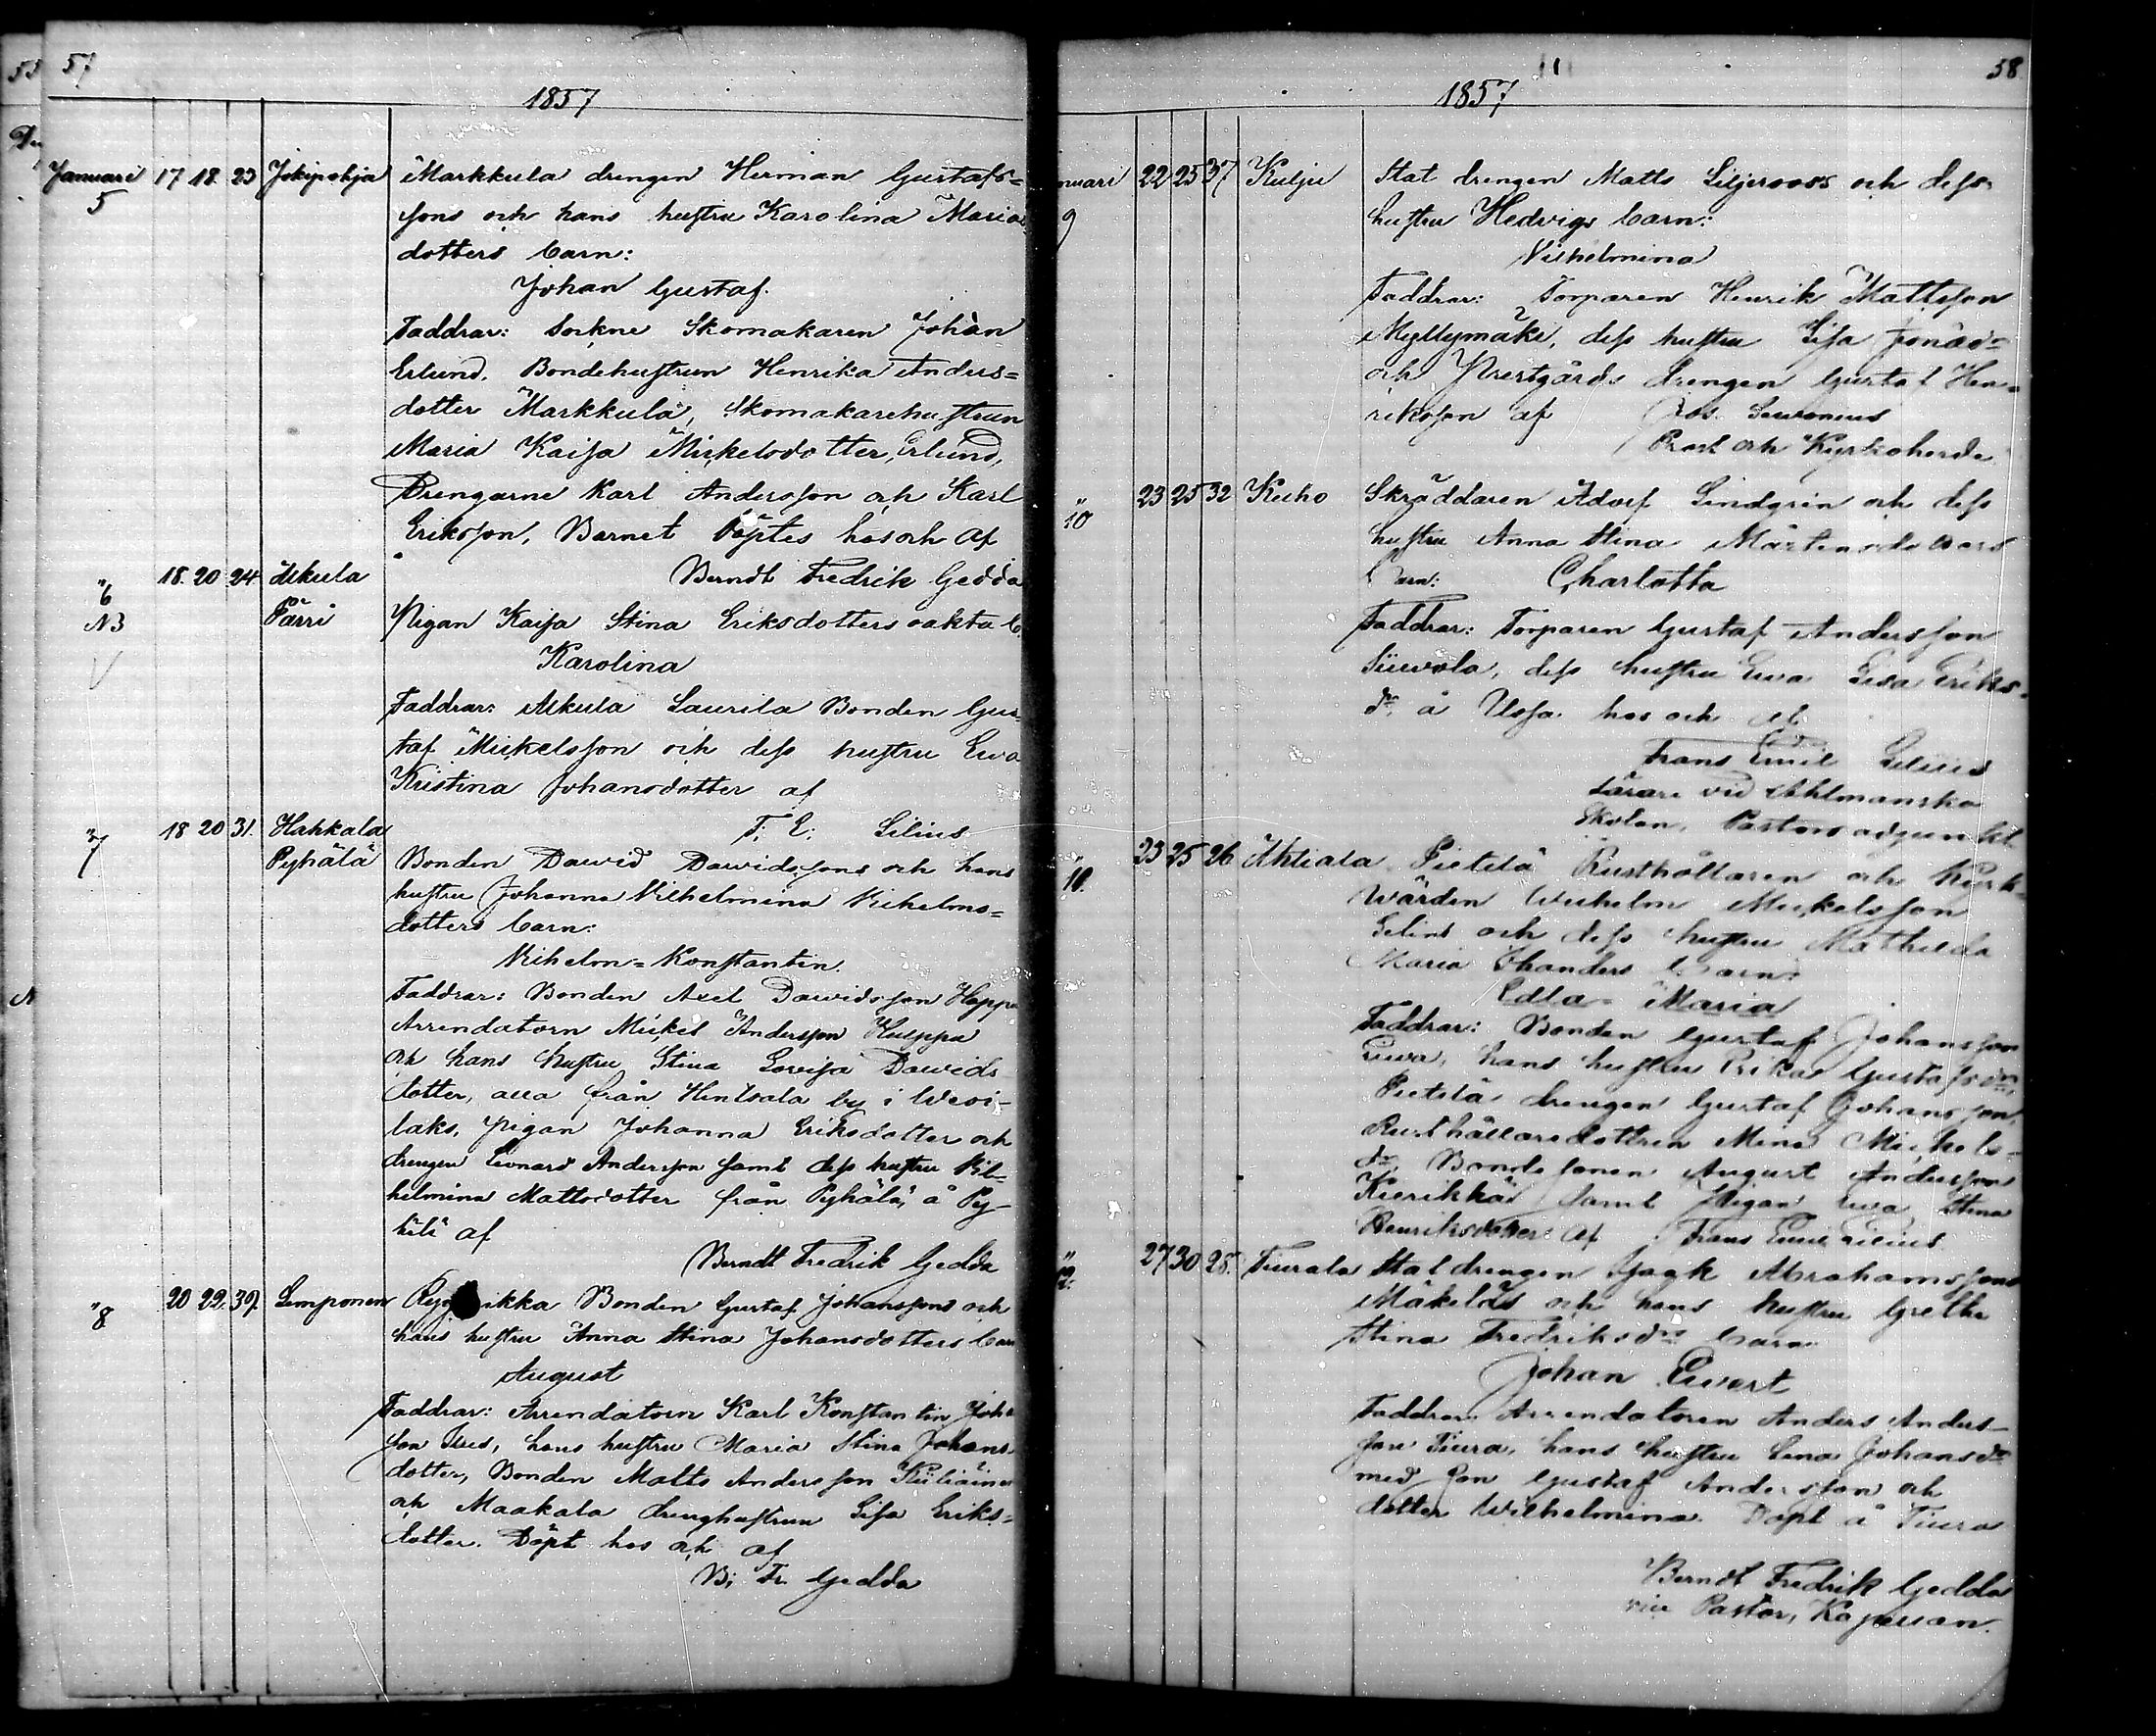 57
1857
Januari 17 18 23 Jokipohja Markkula drengen Herman Gustafs=
5 sons och hans hustru Karolina Maria
dotters barn:
Johan Gustaf.
Faddrar: Sockne Skomakaren Johan
Erlund, Bondehustrun Henrika Anders=
dotter Markkula, Skomakarehustrun
Maria Kaisa Mickelsdotter Erlund,
Drengarne Karl Andersson och Karl
Eriksson, Barnet döptes hos och af
Berndt Fredrik Gedda
" 6 18 20 24 Alkula
NB Pärri Pigan Kaisa Stina Eriksdotters oäkta b
Karolina
Faddrar: Alkula Laurila Bonden Gus
taf Mickelsson och dess hustru Eva
Kristina Johansdotter af
F: E: Lilius
" 7 18 20 31. Hahkala
Pyhälä Bonden Dawid Dawidssons och hans
hustru Johanna Vilhelmina Vilhelms=
dotters barn:
Vilhelm=Konstantin.
Faddrar: Bonden Axel Dawidsson
Arrendatorn Mickel Andersson
och hans hustru Stina Lovisa Dawids
dotter, alla från Hentsala by i Wesi-
laks, Pigan Johanna Eriksdotter och
drengen Leonard Andersson samt dess hustru Vil-
helmina Mattsdotter från Pyhälä, å Py-
hälä af
Berndt Fredrik Gedda
" 8 20 22. 39. Lemponen Bonden Gustaf Johanssons och
hans hustru Anna Stina Johansdotters barn
August
Faddrar: Arrendatorn Karl Konstantin Joha
son hans hustru Maria Stina Johans
dotter, Bonden Matts Andersson
och Maakala drenghustrun Lisa Eriks=
dotter. Döpt hos och af
B: Fr. Gedda
58
1857
nuari 22 25 37 Kulju Stat drengen Matts Liljeroos och dess
9 hustru Hedvigs barn:
Vilhelmina
Faddrar: Torparen Henrik Mattsson
Myllymäki, dess hustru Lisa
och Prestgårds drengen Gustaf Hen=
riksson af
Prost och Kyrkoherde
" 10 23 25 32 Kuho Skräddaren Adorf Lindgrén och dess
hustru Anna Stina Mårtensdotters
Barn: Charlotta
Faddrar: Torparen Gustaf Andersson
dess hustru Eva Lisa Eriks=
dr, å hos och af
Frans Emil Lilius
Lärare vid Ahlmanska
Skolan, Pastors adjunkt
" 10. 23 25 26 Ahtiala Pietilä Rusthållaren och Kyrk=
wärden Wilhelm Mickelsson
och dess hustru Mathilda
Maria barn:
Edla=Maria
Faddrar: Bonden Gustaf Johansson
hans hustru Rika Gustafsdr,
Pietilä drengen Gustaf Johansson,
Rusthållaredottren Mina Mickels=
dr, Bondesonen August Andersson
samt Pigan Eva Stina
Henriksdotter af Frans Emil Lilius
" 12. 27 30 28. Tiurala Staldrengen Isaak Abrahamssons
Mäkeläs och hans hustru Gretha
Stina Fredriksdrs barn
Johan Evert
Faddrar: Arrendatoren Anders Anders-
son Tiura, hans hustru Lena Johansdr
med son Gustaf Andersson och
dotter Wilhelmina. Döpt å Tiura
Berndt Fredrik Gedda
vice Pastor, Kapellan.